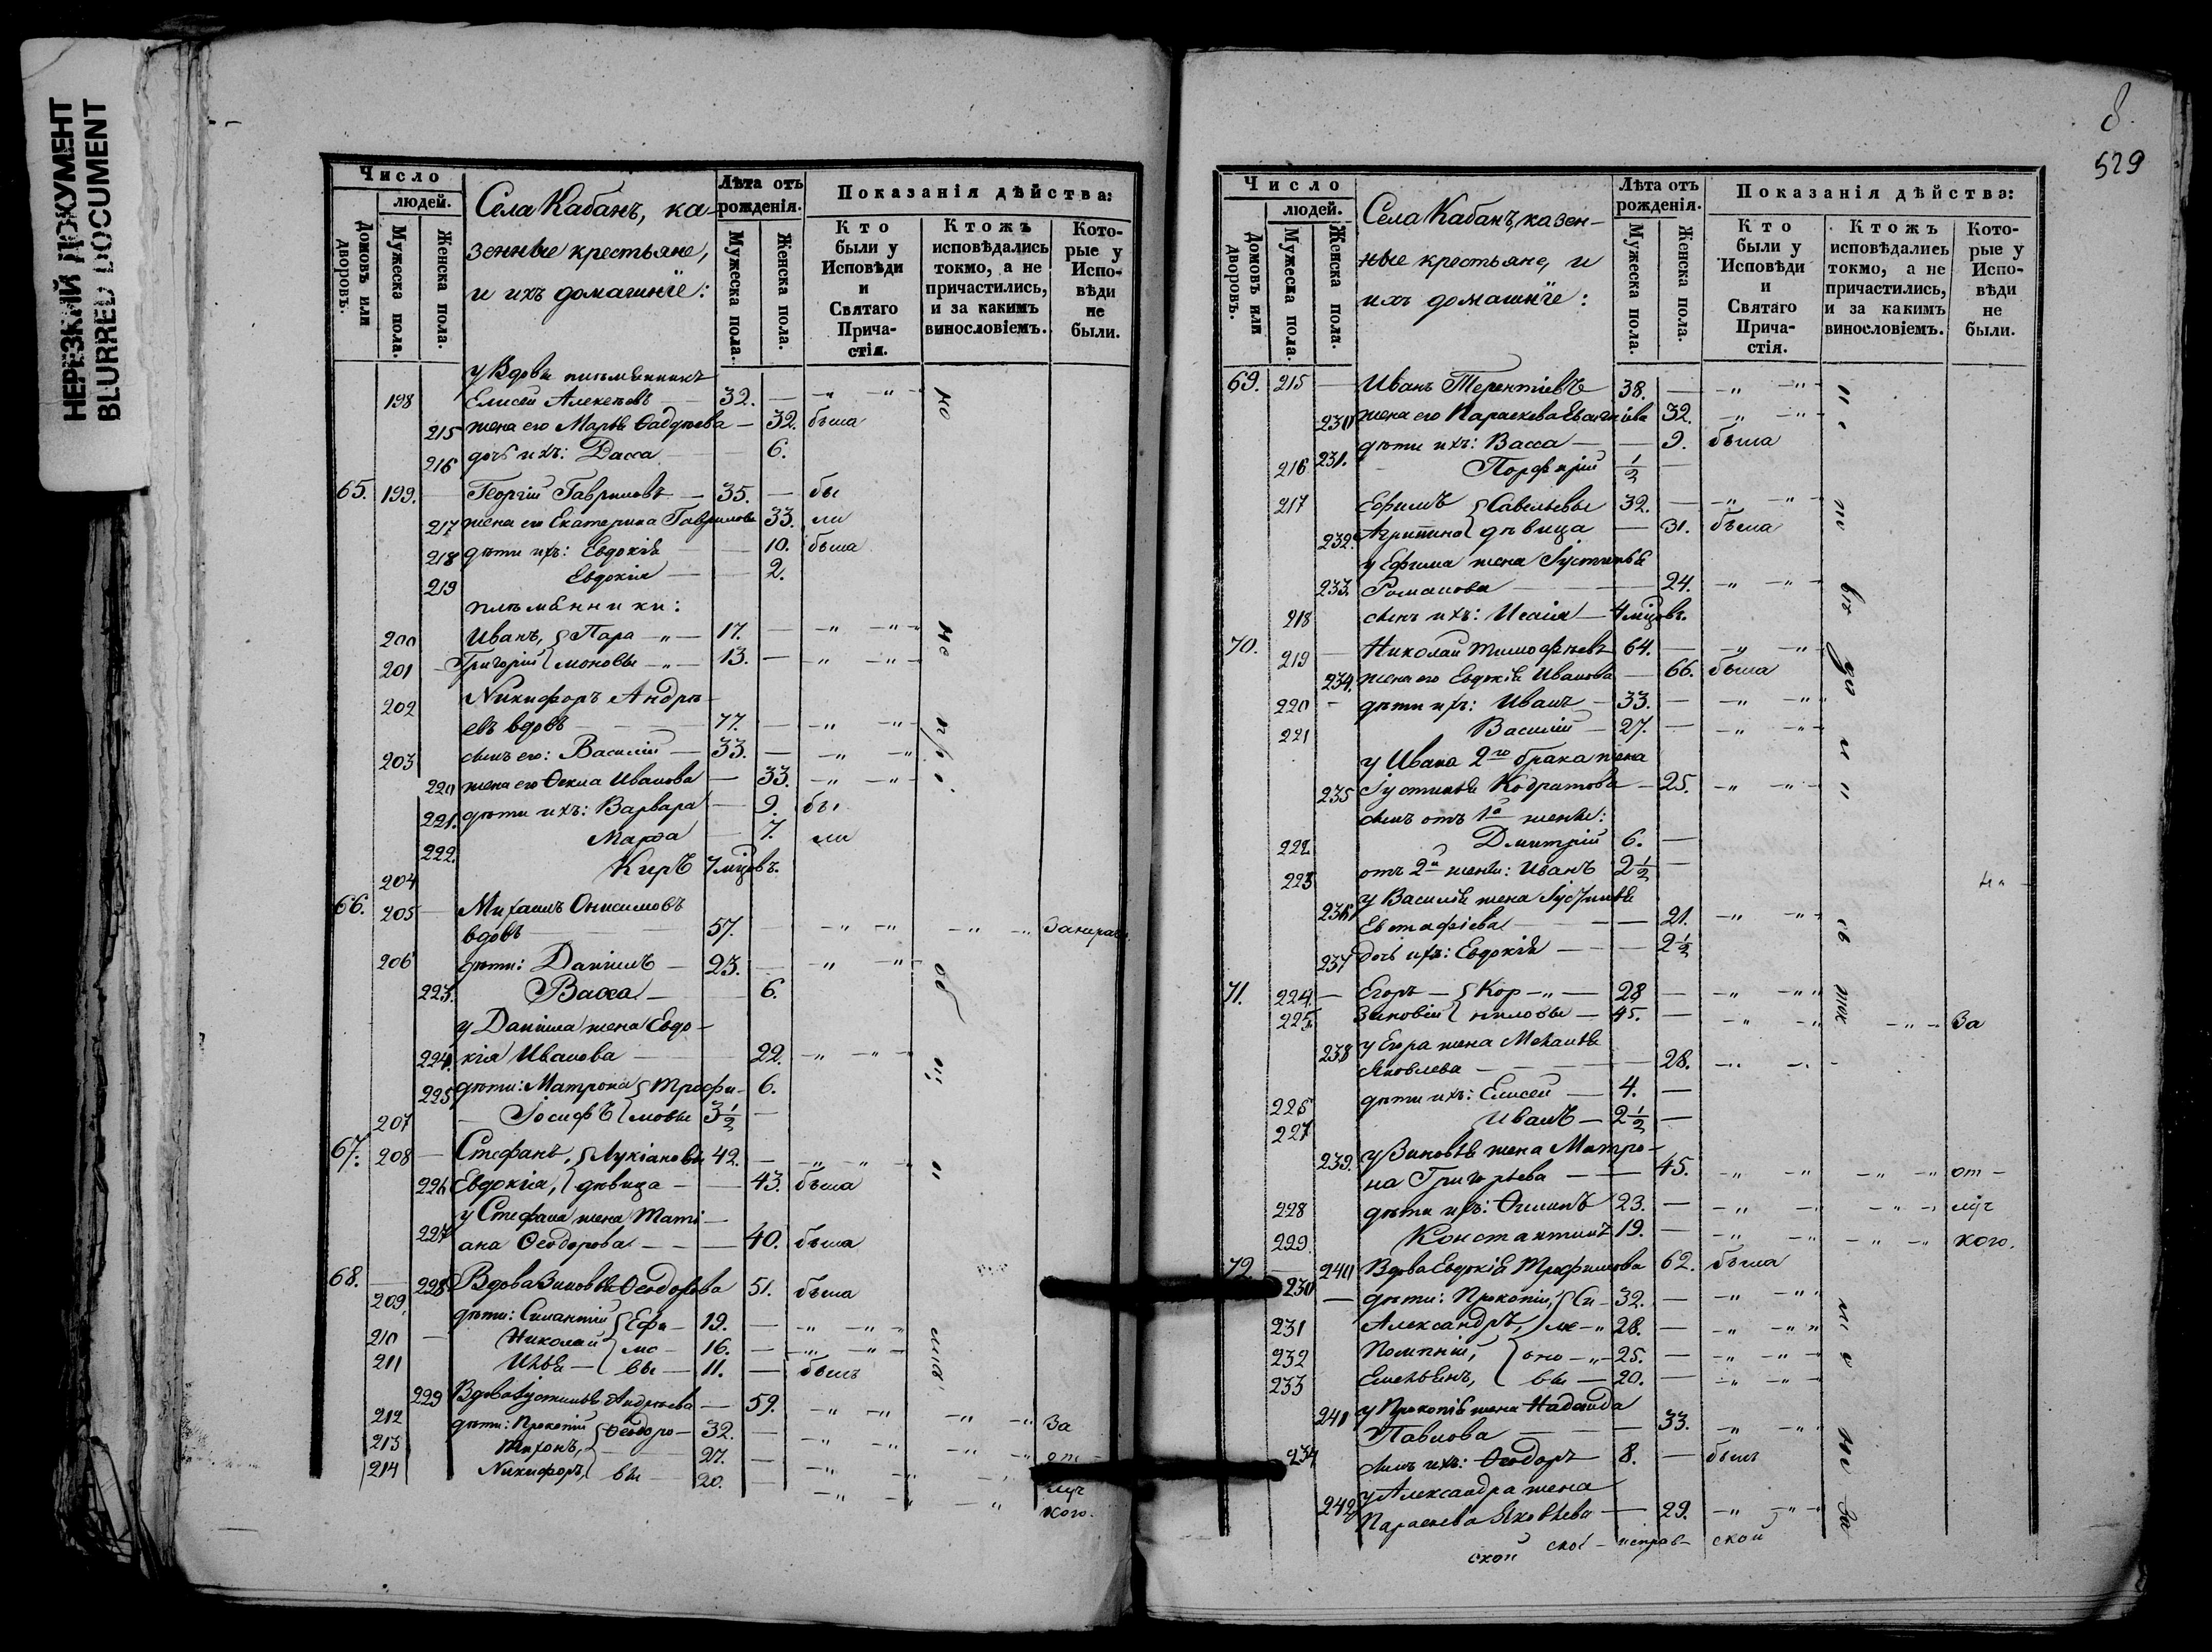 НЕРЕЗКИЙ ДОКУМЕНТ
BLURRED DOCUMENT
Число
людей.
Домовъ или дворовъ.
Мужеска пола.
Женска пола.
Села Кабанъ, ка-
зенные крестьяне,
и ихъ домашнїе:
Лѣта отъ рожденія.
Мужеска пола.
Женска пола.
Показанія дѣйства:
Кто были у Исповѣди и Святаго Причастія.
Ктожъ исповѣдались токмо, а не причастились, и за какимъ винословіемъ.
Которые у Исповѣди не были.
у Вдовы
198 Елисей Алексѣевъ 32.
215 жена его Марья 32. была
216 дочь ихъ: 6.
65. 199. Георгій Гавриловъ 35. бы
217 жена его Екатерина Гаврилова 33. ли
218 дѣти ихъ: Евдокія 10. была
219 Евдокія 2.
племянники:
200 Иванъ, Пара 17.
201 Григорій моновы 13.
202 Никифоръ Андре-
евъ вдовъ 77.
203 сынъ его: Василій 33.
220 жена его Ѳекла Иванова 33.
221. дѣти ихъ: Варвара 9. бы
222. Марѳа 7. ли
204 Киръ 7 мцовъ.
66. 205 Михаилъ Онисимовъ
вдовъ 57.
206 дѣти: Даніилъ 23.
223. Васса 6.
у Даніила жена Евдо-
224. кія Иванова 22.
225 дѣти: Матрона Трофи- 6.
207 Іосифъ мовы 3 1/2
67. 208 Стефанъ, Лукіановы 42.
226 Евдокія, дѣвица 43. была
у Стефана жена Тати-
227 ана Ѳеодорова 40. была
68. 228 Вдова Зиновья Ѳеодорова 51. была
209. дѣти: Ефи- 19.
210 Николай мо- 16.
211 Илья вы 11. былъ
229 Вдова Іустинья Андреева 59.
212 дѣти: Прокопій Ѳеодоро- 32. За
213 Тихонъ, 27. от
214 Никифоръ, вы 20. луч
кого.
8.
529
Число
людей.
Домовъ или дворовъ.
Мужеска пола.
Женска пола.
Села Кабанъ, казен-
ные крестьяне, и
ихъ домашнїе:
Лѣта отъ рожденія.
Мужеска пола.
Женска пола.
Показанія дѣйства:
Кто были у Исповѣди и Святаго Причастія.
Ктожъ исповѣдались токмо, а не причастились, и за какимъ винословіемъ.
Которые у Исповѣди не были.
69. 215 Иванъ Терентіевъ 38.
230 жена его Параскева 32.
231. дѣти ихъ: Васса 9. была
216 Порфирій 1/2
217 Ефимъ Савельевы 32.
232. Агрипина дѣвица 31. была
у Ефима жена Іустинья
233. Романова 24.
218 сынъ ихъ: Исаія 4 мцовъ.
70. 219 Николай Тимофѣевъ 64.
234. жена его Евдокія Иванова 66. была
220 дѣти ихъ: Иванъ 33.
221 Василій 27.
у Ивана 2го брака жена
235 Іустинья Кодратова 25.
сынъ отъ 1й жены:
222 Дмитрій 6.
223 отъ 2й жены: Иванъ 2 1/2
у Василія жена Іустинья
236 Евстафіева 21.
237 дочь ихъ: Евдокія 2 1/2
71. 224. Егоръ Кор 28
225. Зиновій ниловы 45. За
238 у Егора жена Меланья
Яковлева 28.
226 дѣти ихъ: Елисей 4.
227 Иванъ 2 1/2
239. у Зиновья жена Матро-
на Григорьева 45. от
228 дѣти ихъ: 23. луч
229 Константинъ 19. кого.
72. 240 Вдова Евдокія Трофимова 62. была
230 дѣти: Прокопій, Си- 32.
231 Александръ, ме- 28.
232 оно 25.
233 Емельянъ, вы 20.
241 у Прокопія жена Надежда
Павлова 33.
234 сынъ ихъ: Ѳеодоръ 8. былъ
242 у Александра жена
Параскева Яковлева 29.